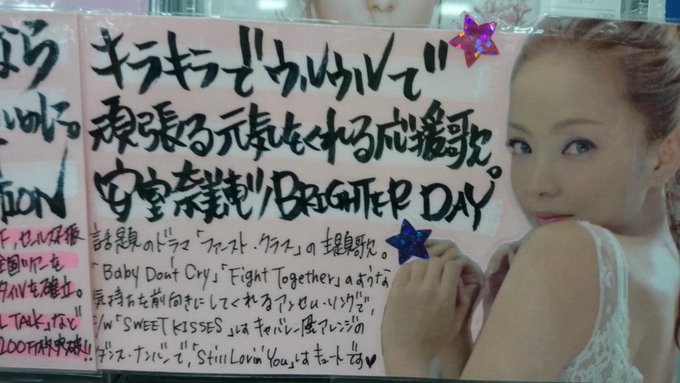 なら
キラキラで ウルウルで
頑張る元気をくれる応援歌。
安室奈美恵/BRIGHTER DAY
話題のドラマ「ファースト・クラス」の主題歌。
「Baby Don't Cry」「Fight Together」のような
気持ちを前向きにしてくれるアンセム・ソングで、
C/W「SWEET KISSES」はキャバレー風アレンジの
ダンス・ナンバーで、「Still Lovin' You」はキュートです♥
めに。
TION
全国ツアーを
タイルを確立。
L TALK」など
200万枚突破!!